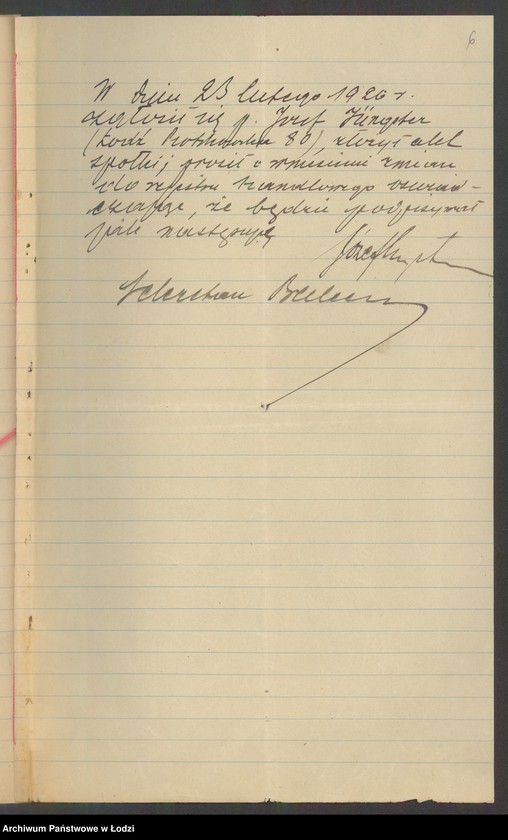 6
W dniu 23 lutego 1926 r.
zgłosił się p. Józef Jüngster
(Łódź Piotrkowska 80), złożył akt
spółki i prosił o wniesienie zmian
do rejestru handlowego oświad-
czając, że będzie podpisywał
jak następuje
Józef
Sekretarz
Archiwum Państwowe w Łodzi